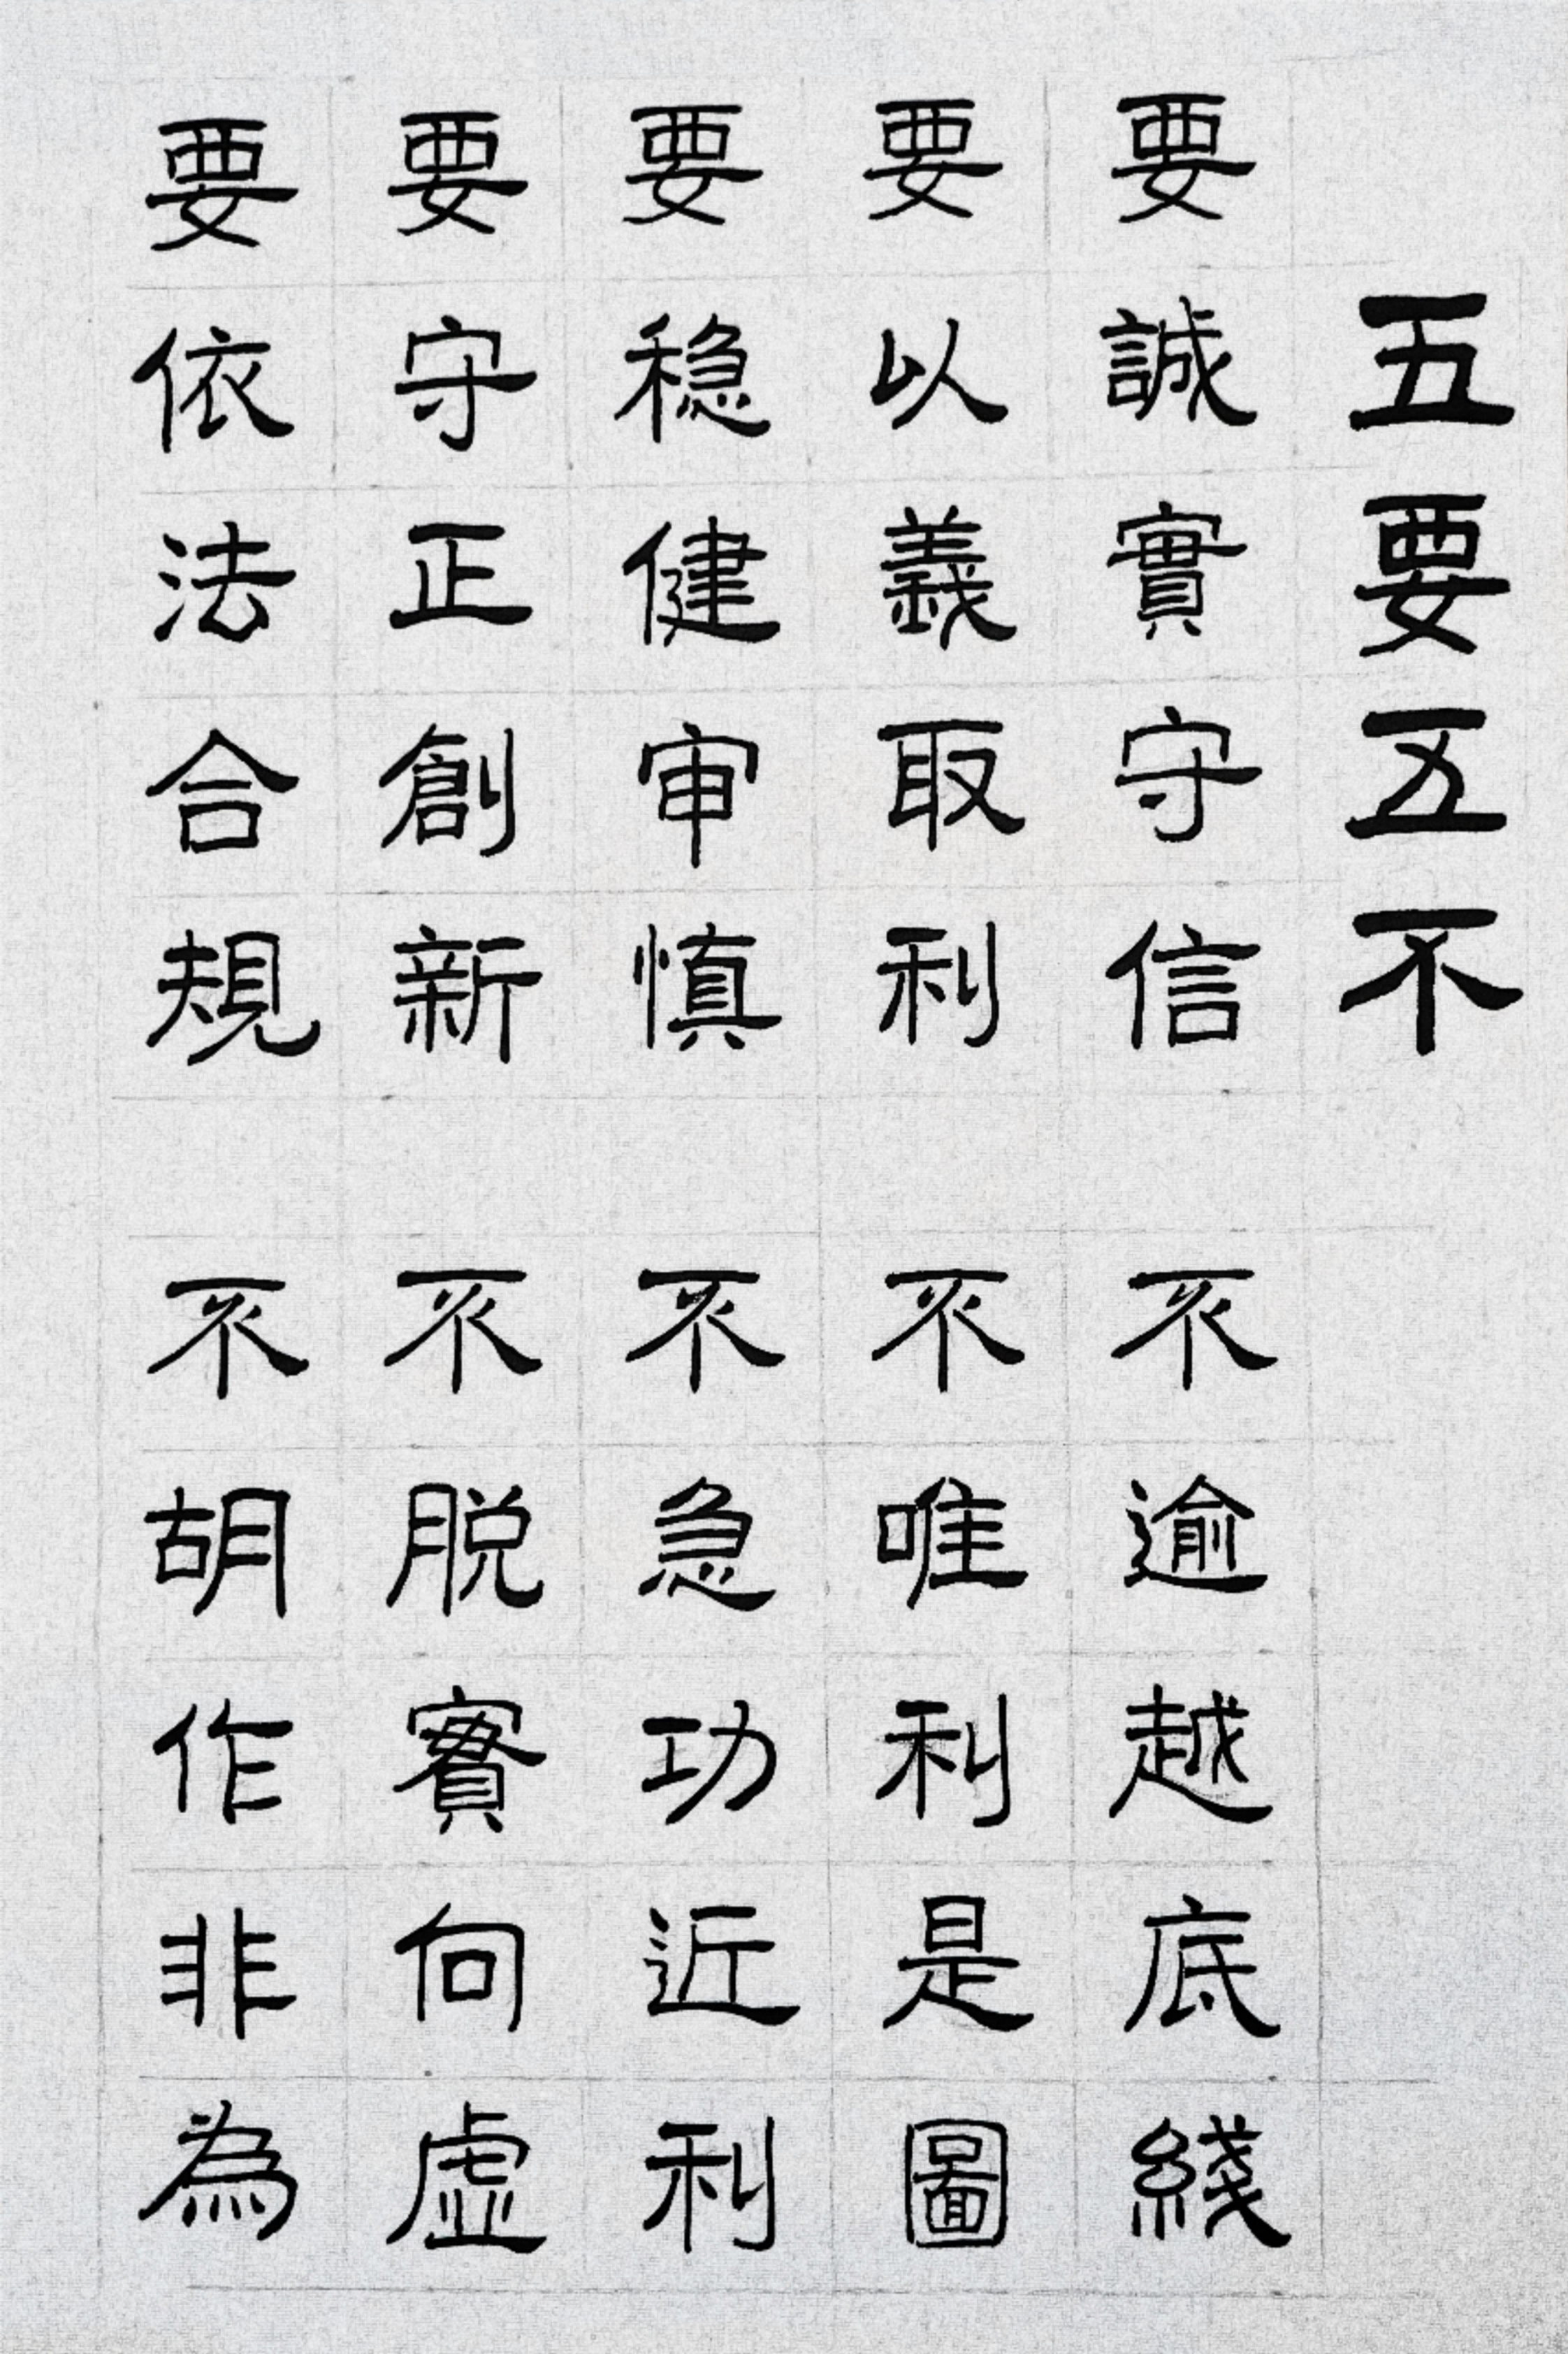 五要五不
要誠實守信 不逾越底綫
要以義取利 不唯利是圖
要稳健审慎 不急功近利
要守正創新 不脱實向虚
要依法合規 不胡作非為